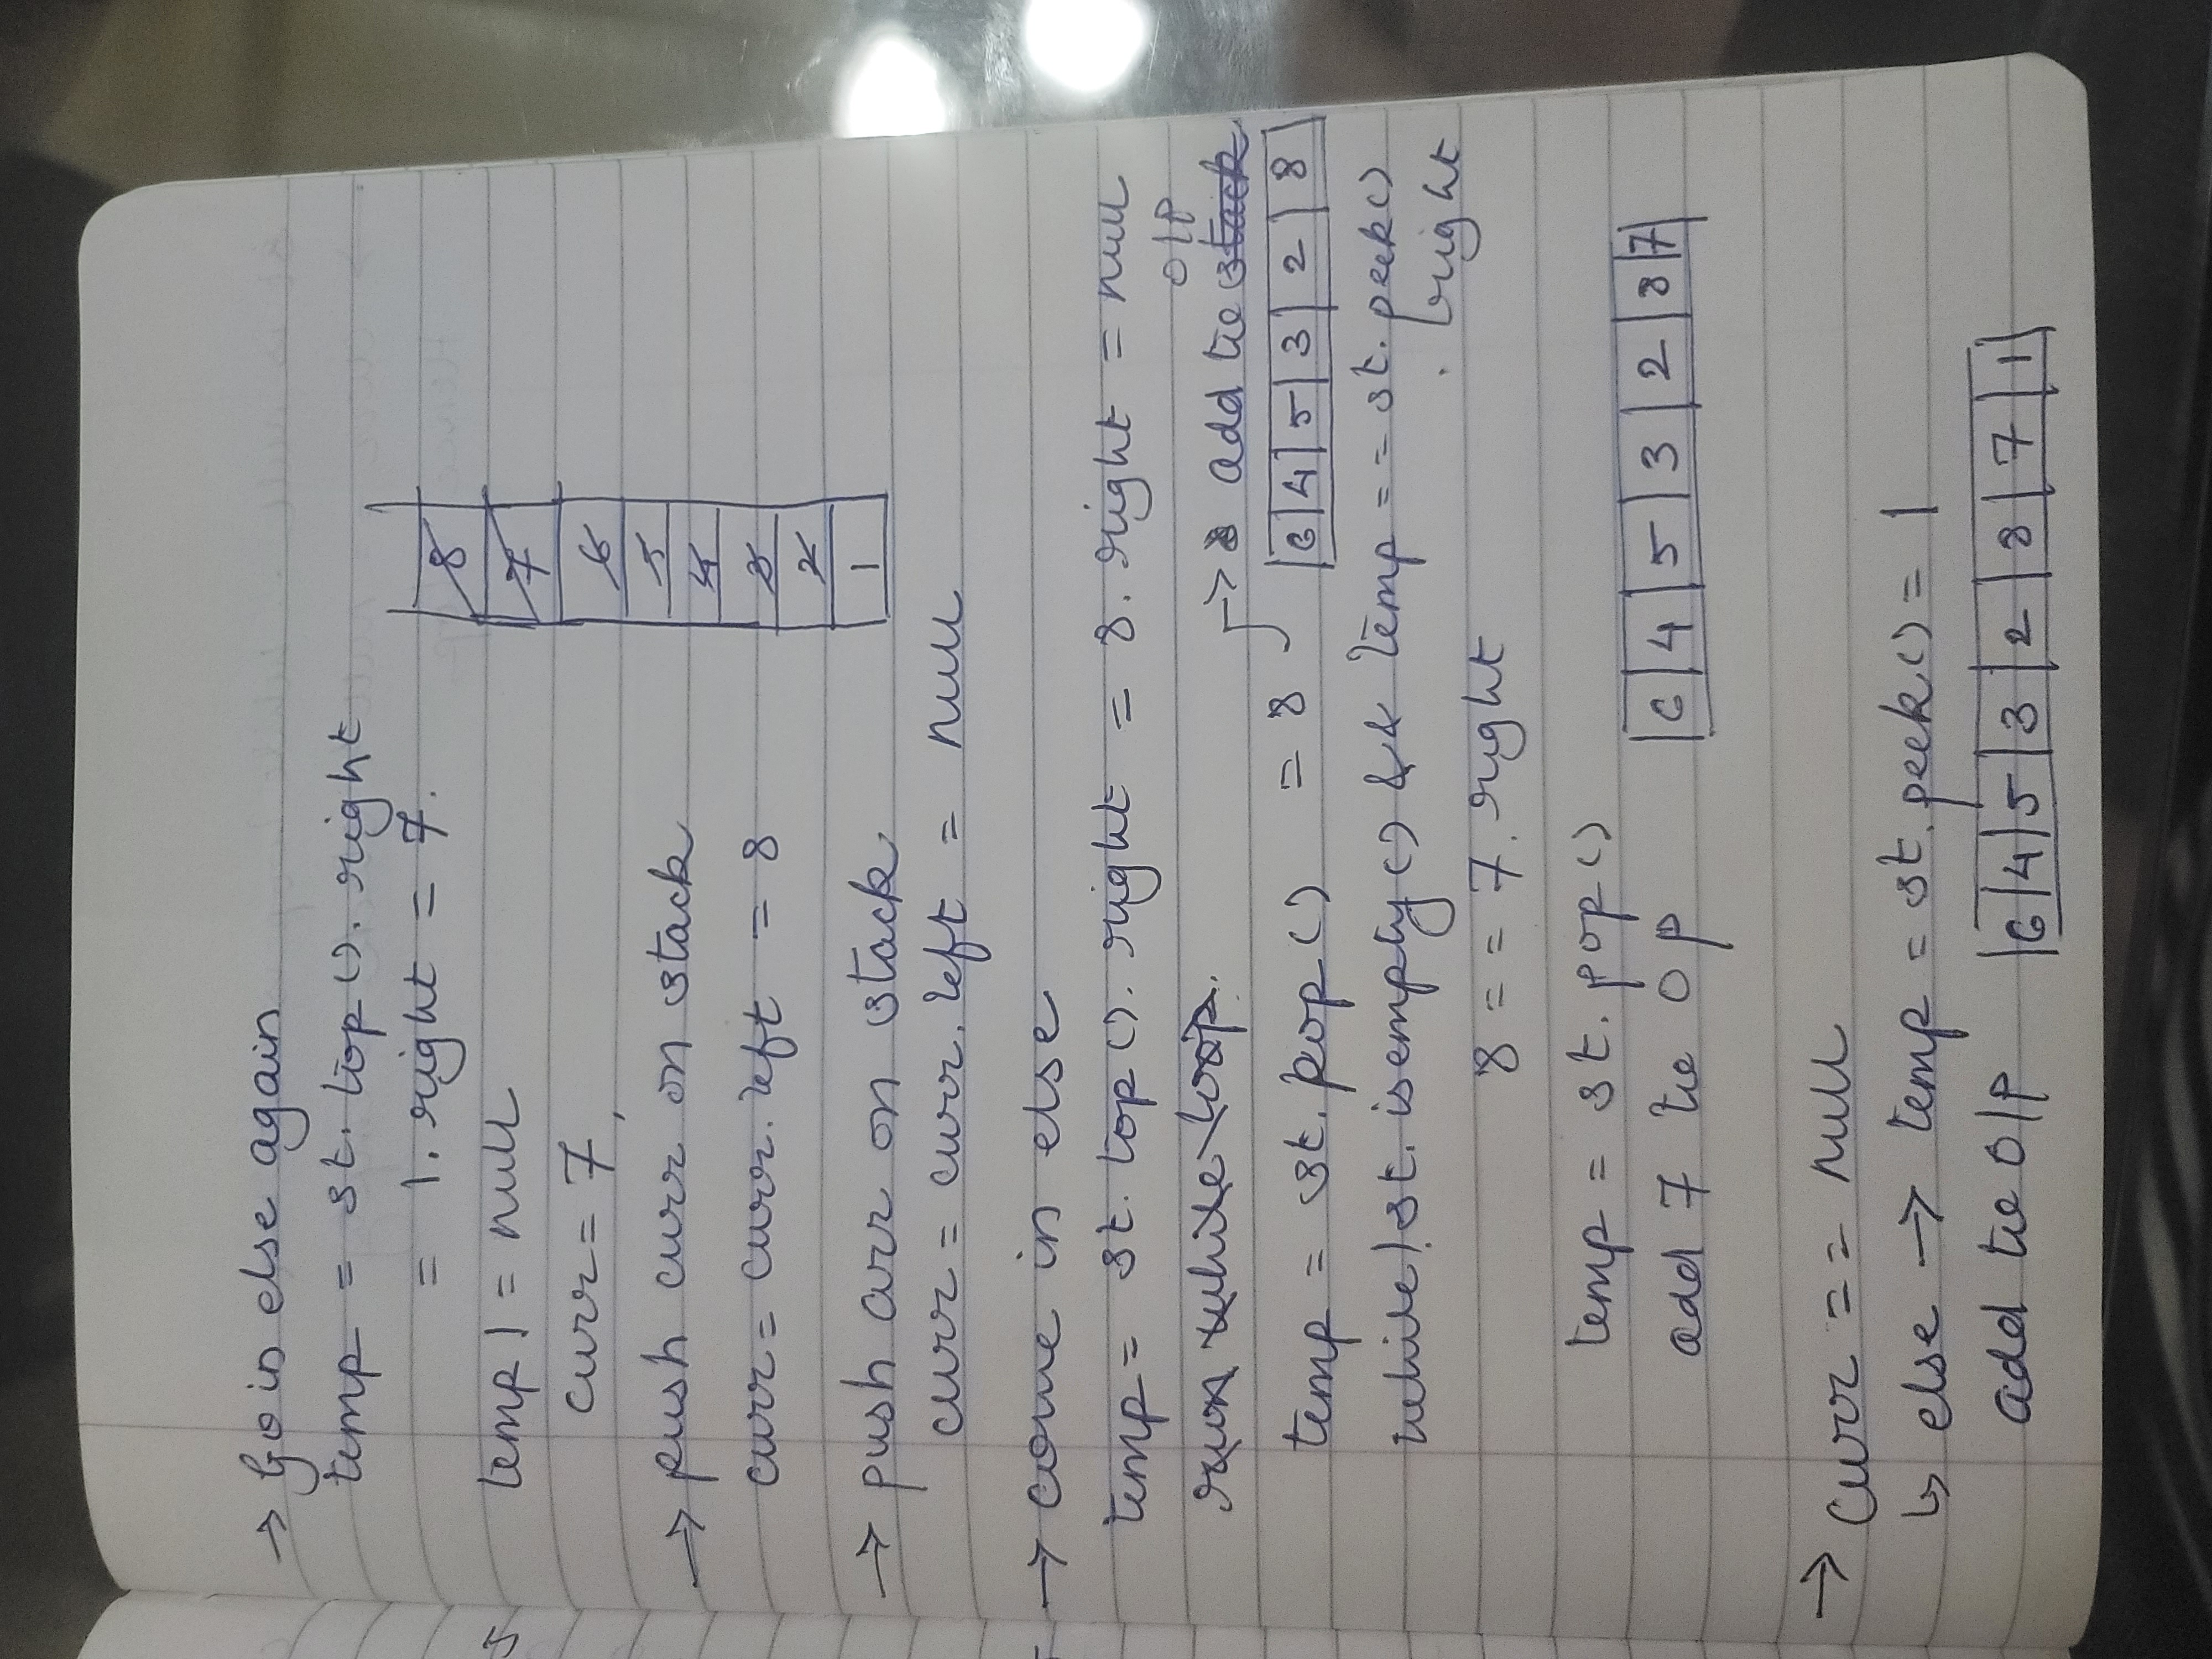 → Go in else again
temp = st. top(). right
= 1. right = 7.
temp1 = null
curr = 7,
→ push curr on stack
curr = curr. left = 8
→ push curr on stack
curr = curr. left = null
8
7
6
5
4
3
2
1
→ come in else
temp = st. top(). right = 8. right = null
run while loop.
O/P
temp = st. pop() = 8 → 8 add to stack
6 4 5 3 2 8
while !st. isempty() && temp == st. peek()
. right
8 == 7. right
temp = st. pop()
add 7 to O P
6 4 5 3 2 8 7
→ curr == null
↳ else → temp = st. peek() = 1
add to O/P 6 4 5 3 2 8 7 1